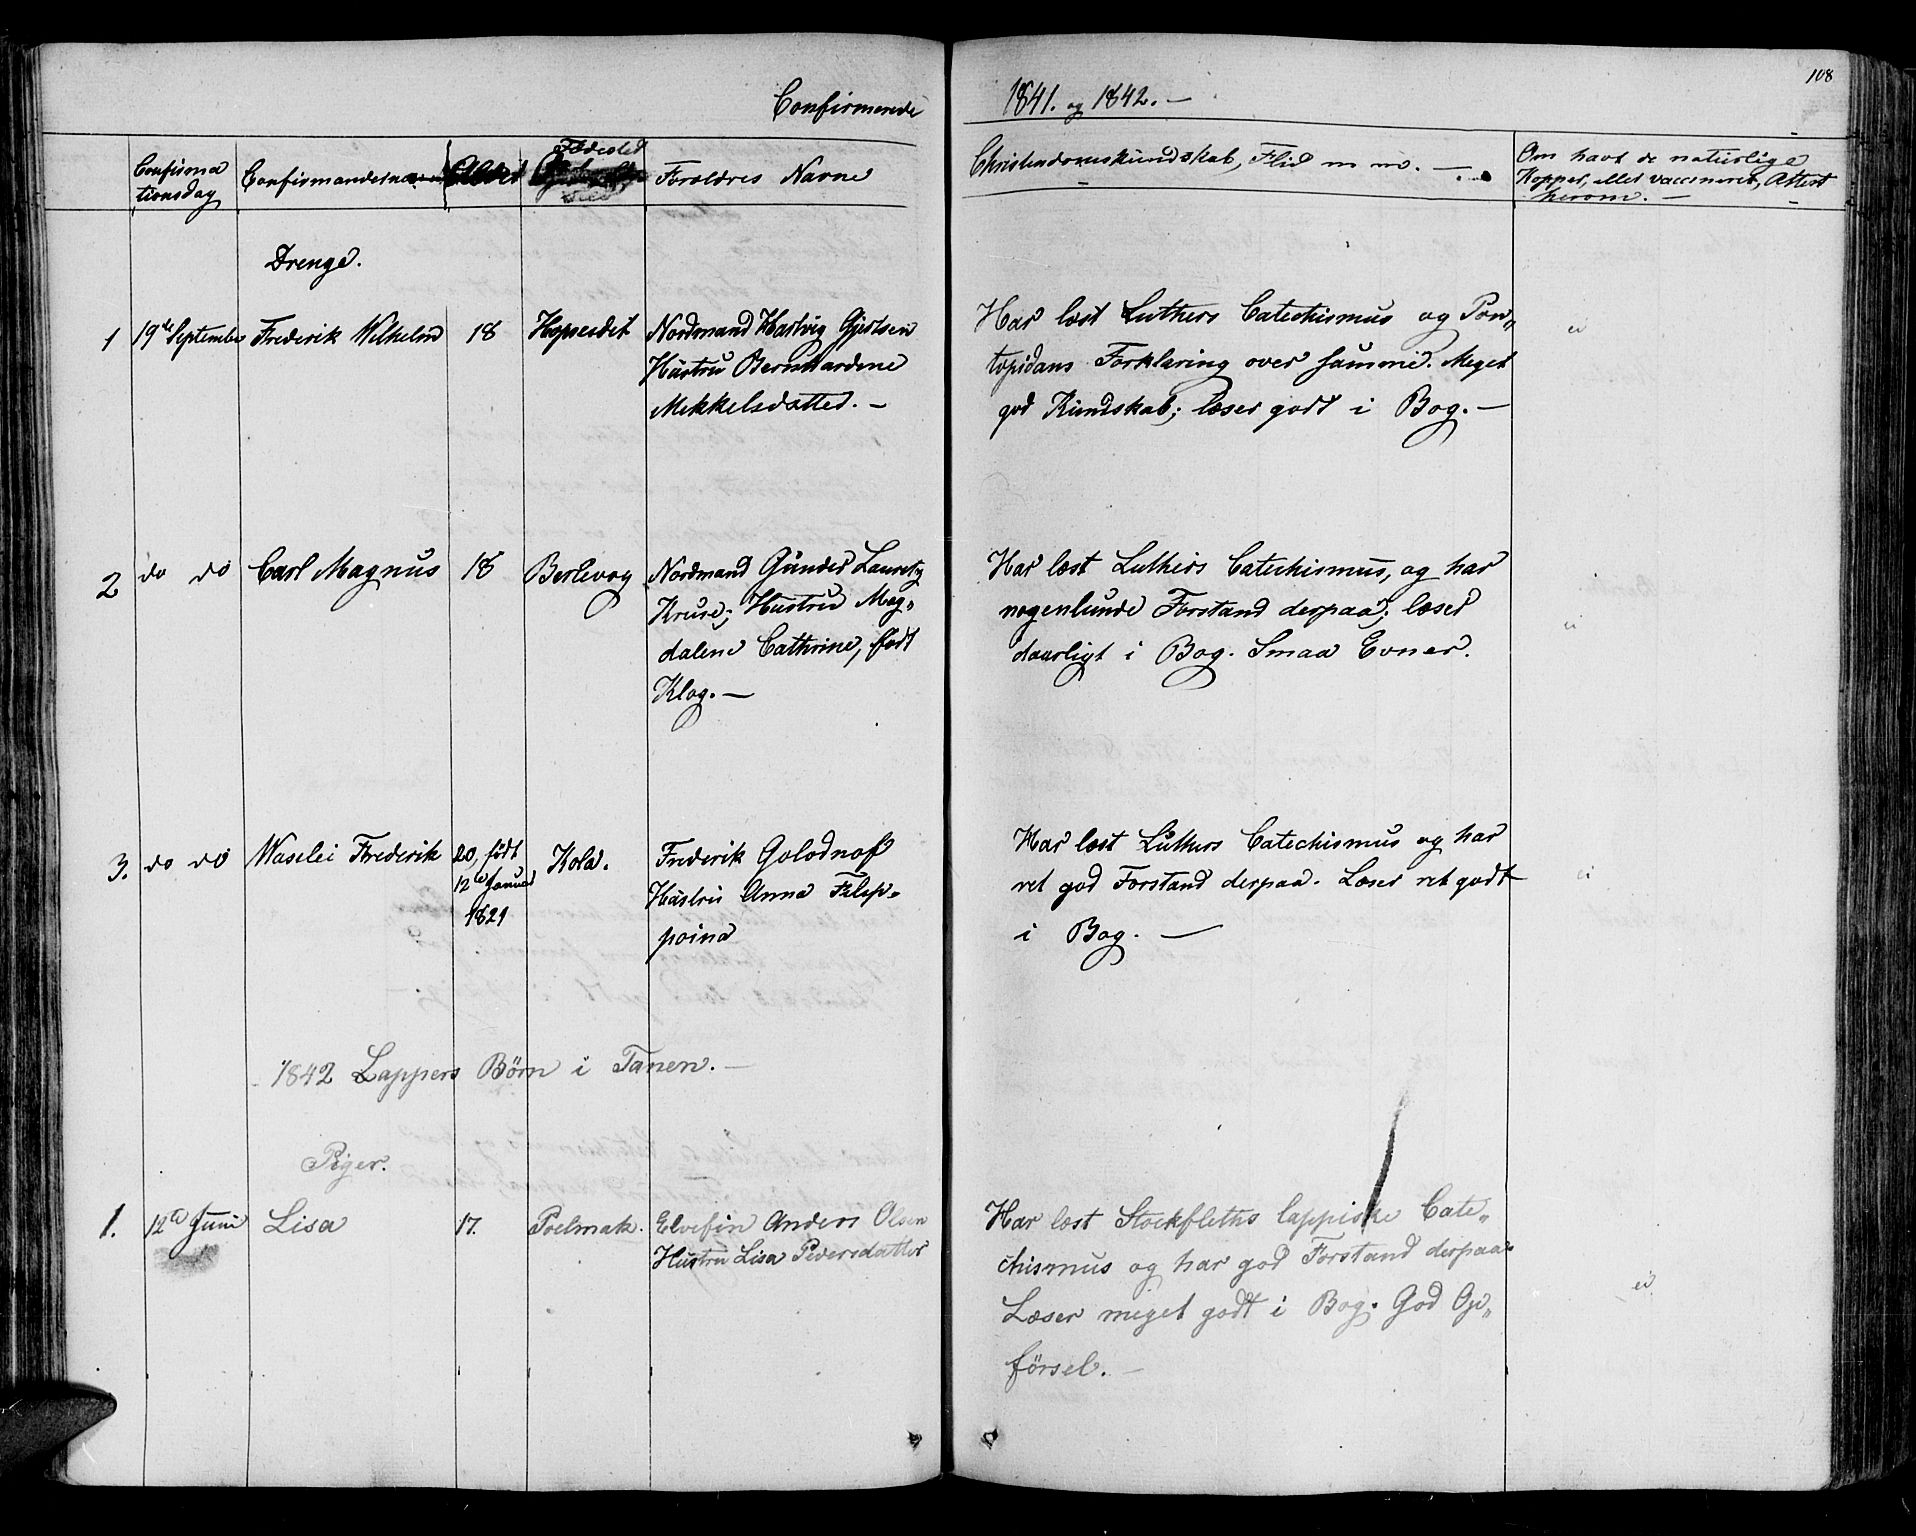 Confirmerede
1841. og 1842. —
108
Confirma
tionsdag
Confirmandernavn
Alder
Fødested
Forældres Navne
Christendomskundskab, Flid m m. —
Om havt de naturlige
Kopper, eller vaccineret, Attest
herom. —
Drenge.
1 19de September Frederik Wilhelm 18 Hopseidet
Nordmand Hartvig Gjertsen
Hustru Bernhardene
Mekkelsdatter. —
Har læst Luthers Catechismus og Pon„
topidans Forklaring over samme. Meget
god Kundskab; læser godt i Bog. —
ei
2 do do Carl Magnus 18 Berlevog
Nordmand Gunder
Kruse; Hustru Mag„
dalene Cathrine, født
Klog. —
Har læst Luthers Catechismus, og har
nogenlunde Forstand derpaa; læser
daarligt i Bog. Smaa Evner.
ei
3. do do Waselei Frederik
20, født
12te Januar
1821
Kola.
Frederik Golodnof
Hustru Anna Filip„
poina
Har læst Luthers Catechismus og har
ret god Forstand derpaa. Læser ret godt
i Bog. —
ei
1842 Lappers Børn i Tanen. —
Piger.
1. 12te Juni Lisa 17. Polmak.
Elvefin Anders Olsen
Hustru Lisa Pedersdatter
Har læst Stockfleths lappiske Cate„
chismus og har god Forstand derpaa.
Læser meget godt i Bog. God Op„
førsel. —
ei